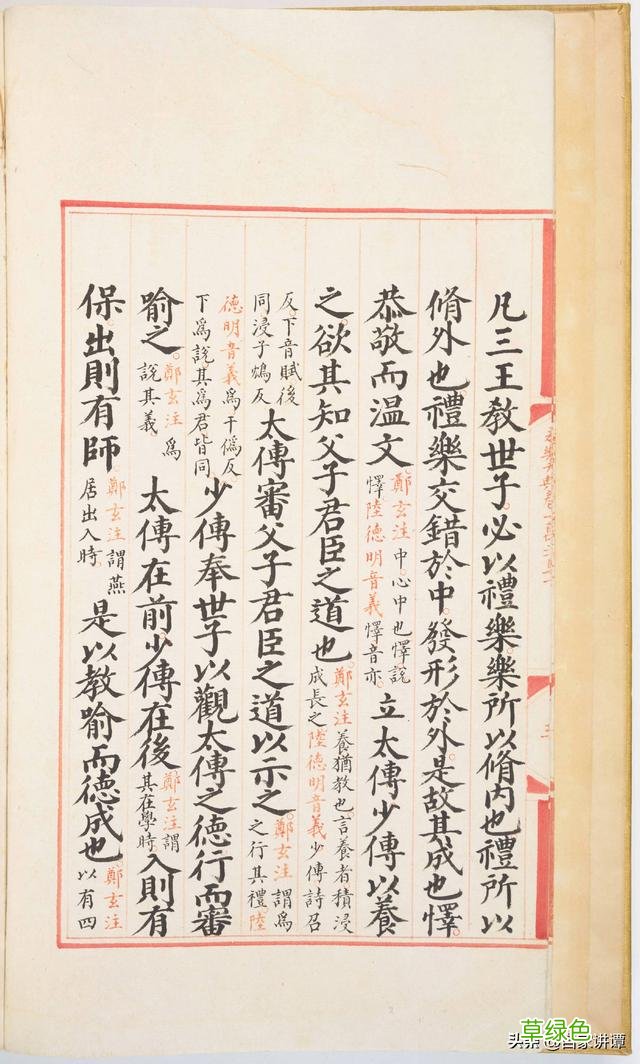 凡三王教世子必以禮樂樂所以脩內也禮所以
脩外也禮樂交錯於中發形於外是故其成也懌
恭敬而溫文鄭玄注中心中也懌說懌陸德明音義懌音亦立太傅少傅以養
之欲其知父子君臣之道也鄭玄注養猶教也言養者積浸成長之陸德明音義少傅詩召
反下音賦後同浸子鴆反太傅審父子君臣之道以示之鄭玄注謂爲之行其禮陸
德明音義爲于僞反下爲說其爲君皆同少傅奉世子以觀太傅之德行而審
喻之鄭玄注爲說其義太傅在前少傅在後鄭玄注謂其在學時入則有
保出則有師鄭玄注謂燕居出入時是以教喻而德成也鄭玄注以有四
草绿色
头条 @百家讲谭